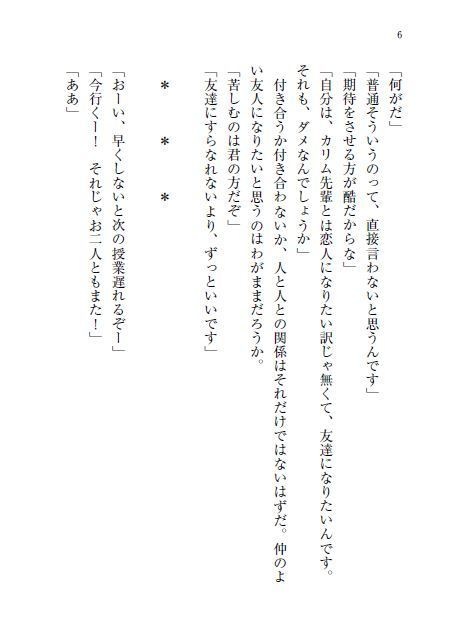 6
「何がだ」
「普通そういうのって、直接言わないと思うんです」
「期待をさせる方が酷だからな」
「自分は、カリム先輩とは恋人になりたい訳じゃ無くて、友達になりたいんです。
それも、ダメなんでしょうか」
　付き合うか付き合わないか、人と人との関係はそれだけではないはずだ。仲のよ
い友人になりたいと思うのはわがままだろうか。
「苦しむのは君の方だぞ」
「友達にすらなれないより、ずっといいです」
＊　＊　＊
「おーい、早くしないと次の授業遅れるぞー」
「今行くー！　それじゃお二人ともまた！」
「ああ」